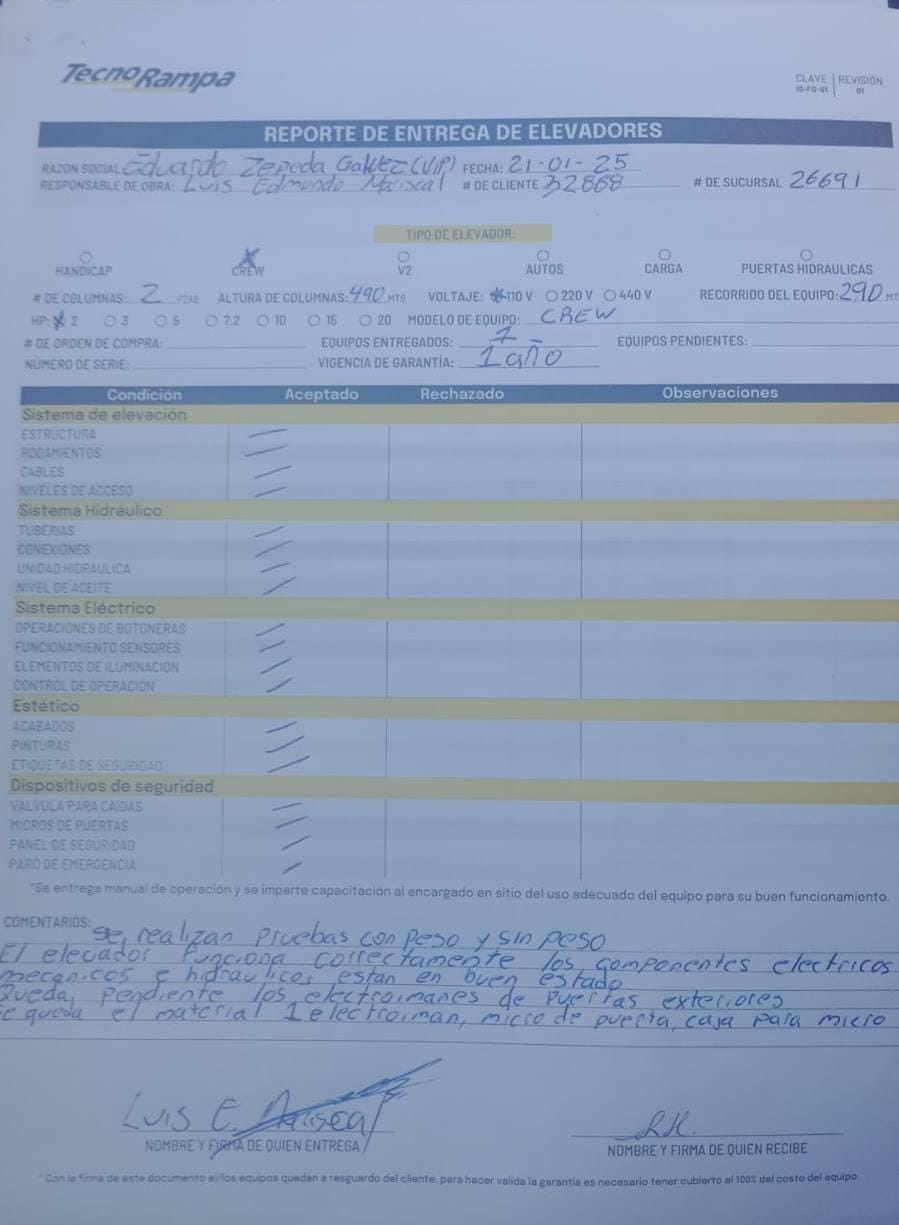 TecnoRampa
CLAVE REVISIÓN
IS-FO-01 01
REPORTE DE ENTREGA DE ELEVADORES
RAZÓN SOCIAL: Eduardo Zepeda Galvez (VIP) FECHA: 21-01-25
RESPONSABLE DE OBRA: Luis Edmundo Mariscal # DE CLIENTE 32888 # DE SUCURSAL 26691
TIPO DE ELEVADOR:
HANDICAP CREW V2 AUTOS CARGA PUERTAS HIDRAULICAS
# DE COLUMNAS: 2 PZAS ALTURA DE COLUMNAS: 490 MTS VOLTAJE: 110 V 220 V 440 V RECORRIDO DEL EQUIPO: 290 MT
HP: 2 3 5 7.2 10 15 20 MODELO DE EQUIPO: CREW
# DE ORDEN DE COMPRA: EQUIPOS ENTREGADOS: 1 EQUIPOS PENDIENTES:
NÚMERO DE SERIE: VIGENCIA DE GARANTÍA: 1 año
Condición Aceptado Rechazado Observaciones
Sistema de elevación
ESTRUCTURA
RODAMIENTOS
CABLES
NIVELES DE ACCESO
Sistema Hidráulico
TUBERIAS
CONEXIONES
UNIDAD HIDRAULICA
NIVEL DE ACEITE
Sistema Eléctrico
OPERACIONES DE BOTONERAS
FUNCIONAMIENTO SENSORES
ELEMENTOS DE ILUMINACIÓN
CONTROL DE OPERACIÓN
Estético
ACABADOS
PINTURAS
ETIQUETAS DE SEGURIDAD
Dispositivos de seguridad
VALVULA PARA CAIDAS
MICROS DE PUERTAS
PANEL DE SEGURIDAD
PARO DE EMERGENCIA
*Se entrega manual de operación y se imparte capacitación al encargado en sitio del uso adecuado del equipo para su buen funcionamiento.
COMENTARIOS: se realizan pruebas con peso y sin peso
El elevador funciona correctamente los componentes electricos
mecanicos e hidraulicos estan en buen estado
Queda pendiente los electroimanes de puertas exteriores
se queda el material 1 electroiman, micro de puerta, caja para micro
Luis E. Mariscal
NOMBRE Y FIRMA DE QUIEN ENTREGA
NOMBRE Y FIRMA DE QUIEN RECIBE
* Con la firma de este documento el/los equipos quedan a resguardo del cliente, para hacer valida la garantía es necesario tener cubierto el 100% del costo del equipo.